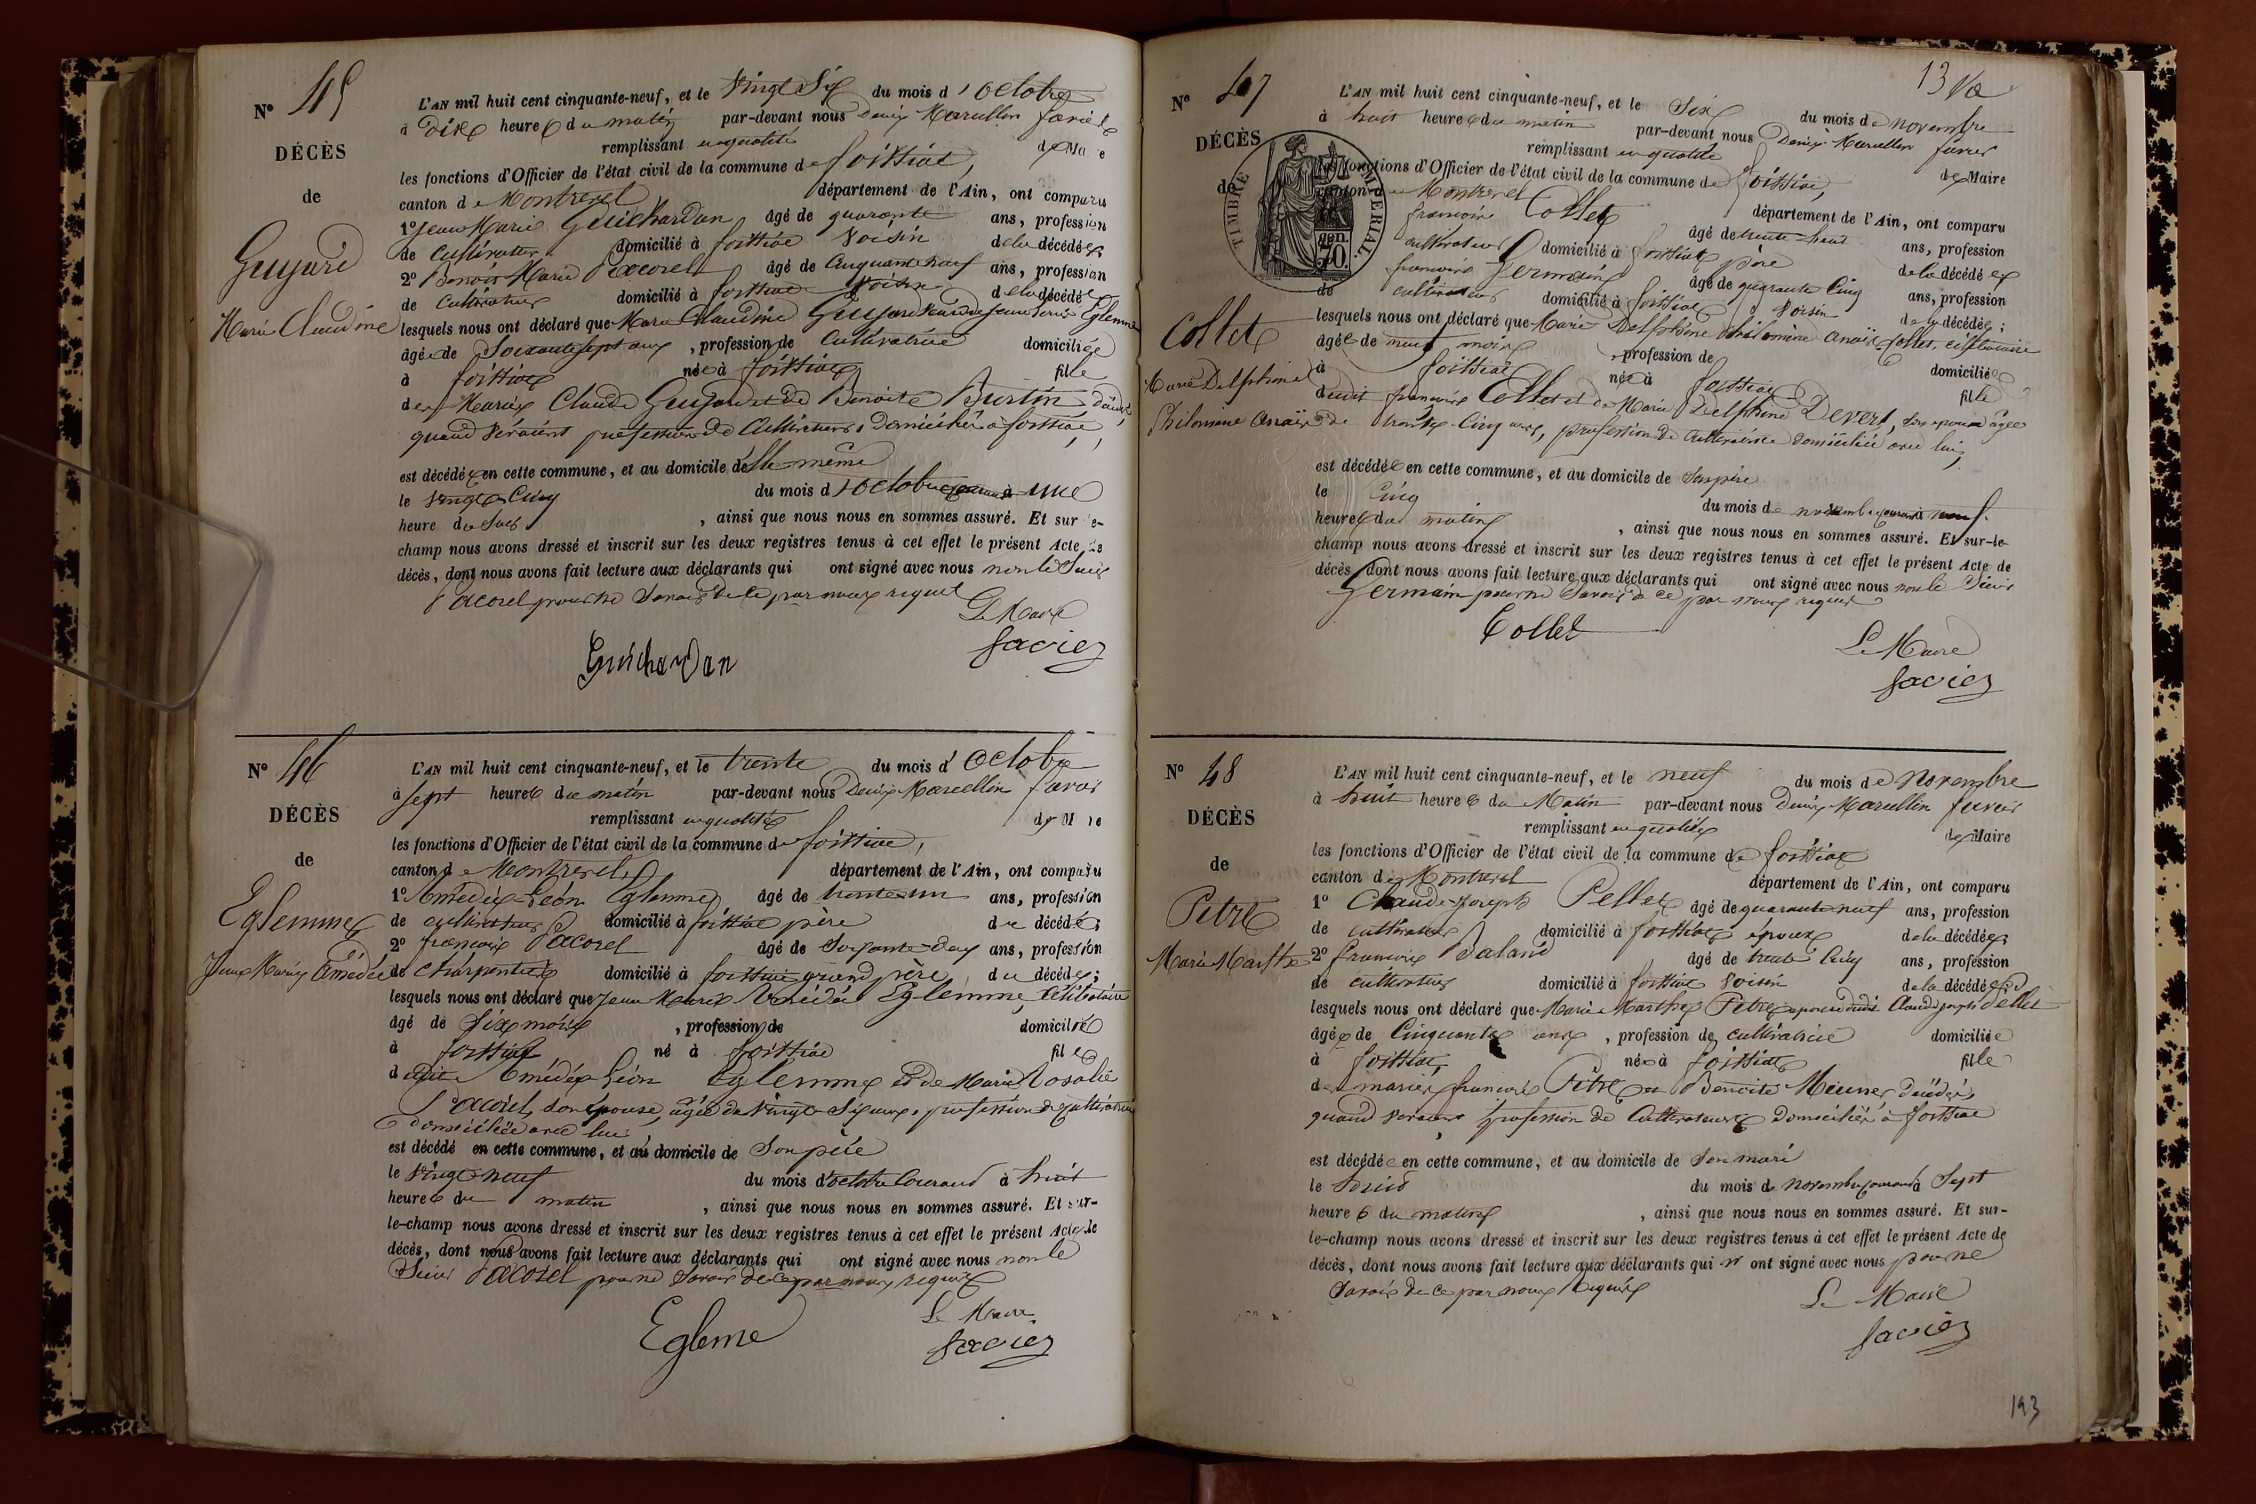 N° 45
DÉCÈS
de
Guyard
Marie Claudine
L'AN mil huit cent cinquante-neuf, et le vingt Six du mois d'octobre
à dix heures du matin par-devant nous Denis Marcellin favier
remplissant en qualité de Maire
les fonctions d'Officier de l'état civil de la commune de foissiat,
canton de Montrevel département de l'Ain, ont comparu
1° Jean Marie Guichardan âgé de quarante ans, profession
de cultivateur domicilié à foissiat voisin de la décédée
2° Benoit Marie Pacorel âgé de cinquante neuf ans, profession
de cultivateur domicilié à foissiat voisin de la décédée
lesquels nous ont déclaré que Marie Claudine Guyard Eglemme
âgée de Soixante sept ans, profession de cultivatrice domiciliée
à foissiat née à foissiat fille
de Marie Claude Guyard et de Benoite Burtin
quand vivaient profession de cultivateurs domiciliés à foissiat,
est décédée en cette commune, et au domicile d'elle même
le vingt Cinq du mois d'octobre courant à une
heure du Soir, ainsi que nous nous en sommes assuré. Et sur-le-
champ nous avons dressé et inscrit sur les deux registres tenus à cet effet le présent Acte de
décès, dont nous avons fait lecture aux déclarants qui ont signé avec nous non le Sieur
Pacorel pour ne Savoir de ce par nous requis
Le Maire
Guichardan favier
N° 46
DÉCÈS
de
Eglemme
Jean Marie Amédée
L'AN mil huit cent cinquante-neuf, et le trente du mois d'octobre
à sept heures du matin par-devant nous Denis Marcellin favier
remplissant en qualité de Maire
les fonctions d'Officier de l'état civil de la commune de foissiat,
canton de Montrevel département de l'Ain, ont comparu
1° Amédée Léon Eglemme âgé de trente un ans, profession
de cultivateur domicilié à foissiat père du décédé;
2° françois Pacorel âgé de Soixante deux ans, profession
de charpentier domicilié à foissiat grand père du décédé;
lesquels nous ont déclaré que Jean Marie Amédée Eglemme, célibataire
âgé de Six mois, profession de domicilié
à foissiat né à foissiat fils
dudit Amédée Léon Eglemme et de Marie Rosalie
Pacorel, son épouse, âgée de vingt Six ans, profession de cultivatrice
domiciliée avec lui
est décédé en cette commune, et au domicile de Son père
le vingt neuf du mois d'octobre courant à huit
heures du matin, ainsi que nous nous en sommes assuré. Et sur-
le-champ nous avons dressé et inscrit sur les deux registres tenus à cet effet le présent Acte de
décès, dont nous avons fait lecture aux déclarants qui ont signé avec nous non le
Sieur Pacorel pour ne Savoir de ce par nous requis
Le Maire
Egleme favier
13
N° 47
DÉCÈS
de
TIMBRE IMPERIAL
gen.
70.
Collet
Marie Delphine
Philomène Anaïs
L'AN mil huit cent cinquante-neuf, et le Six du mois de novembre
à huit heures du matin par-devant nous Denis Marcellin favier
remplissant en qualité de Maire
les fonctions d'Officier de l'état civil de la commune de foissiat,
canton de Montrevel département de l'Ain, ont comparu
françois Collet âgé de trente huit ans, profession
cultivateur domicilié à foissiat père de la décédée
françois Germain âgé de quarante Cinq ans, profession
de cultivateur domicilié à foissiat voisin de la décédée;
lesquels nous ont déclaré que Marie Delphine Philomène Anaïs Collet, célibataire
âgée de neuf mois, profession de domiciliée
à foissiat née à foissiat fille
dudit françois Collet et de Marie Delphine Devert, son épouse âgée
de trente-Cinq ans, profession de cultivatrice domiciliée avec lui,
est décédée en cette commune, et au domicile de Son père
le Cinq du mois de novembre courant à neuf
heures du matin, ainsi que nous nous en sommes assuré. Et sur-le-
champ nous avons dressé et inscrit sur les deux registres tenus à cet effet le présent Acte de
décès, dont nous avons fait lecture aux déclarants qui ont signé avec nous non le Sieur
Germain pour ne Savoir de ce par nous requis
Collet Le Maire
favier
N° 48
DÉCÈS
de
Petre
Marie Marthe
L'AN mil huit cent cinquante-neuf, et le neuf du mois de Novembre
à huit heures du Matin par-devant nous Denis Marcellin favier
remplissant en qualité de Maire
les fonctions d'Officier de l'état civil de la commune de foissiat
canton de Montrevel département de l'Ain, ont comparu
1° Claude-Joseph Pellet âgé de quarante neuf ans, profession
de cultivateur domicilié à foissiat époux de la décédée;
2° françois Baland âgé de trente Cinq ans, profession
de cultivateur domicilié à foissiat voisin de la décédée
lesquels nous ont déclaré que Marie Marthe Petre épouse dudit Claude Joseph Pellet
âgée de Cinquante ans, profession de cultivatrice domiciliée
à foissiat, née à foissiat fille
de marie françois Petre et Benoite Meunier, décédés,
quand vivaient profession de cultivateurs domiciliés à foissiat
est décédée en cette commune, et au domicile de Son mari
le huit du mois de Novembre courant à Sept
heures du matin, ainsi que nous nous en sommes assuré. Et sur-
le-champ nous avons dressé et inscrit sur les deux registres tenus à cet effet le présent Acte de
décès, dont nous avons fait lecture aux déclarants qui n' ont signé avec nous pour ne
Savoir de ce par nous Requis
Le Maire
favier
193